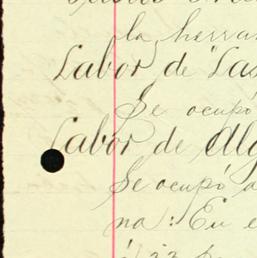 la herra
Labor de Las
Se ocupó
Labor de Alg
Se ocupó a
na: En e